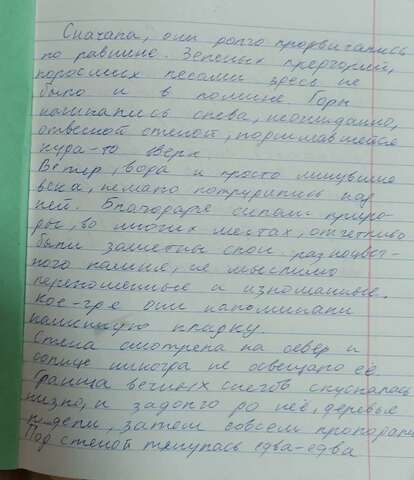 Сначала, они долго продвигались
по равнине. Зеленых предгорий,
поросших лесами здесь не
было и в помине. Горы
начинались слева, неожиданно,
отвесной стеной, поднимавшейся
куда-то вверх.
Ветер, вода и просто минувшие
века, немало потрудились над
ней. Благодаря силам приро-
ды, во многих местах, отчетливо
были заметны слои разноцвет-
ного камня, не мыслимо
переломленные и изломанные.
Кое-где они напоминали
каменную кладку.
Стена смотрела на север и
солнце никогда не освещало её.
Граница вечных снегов спускалась
низко, и задолго до неё, деревья
редели, затем совсем пропадали
Под стеной тянулась едва-едва